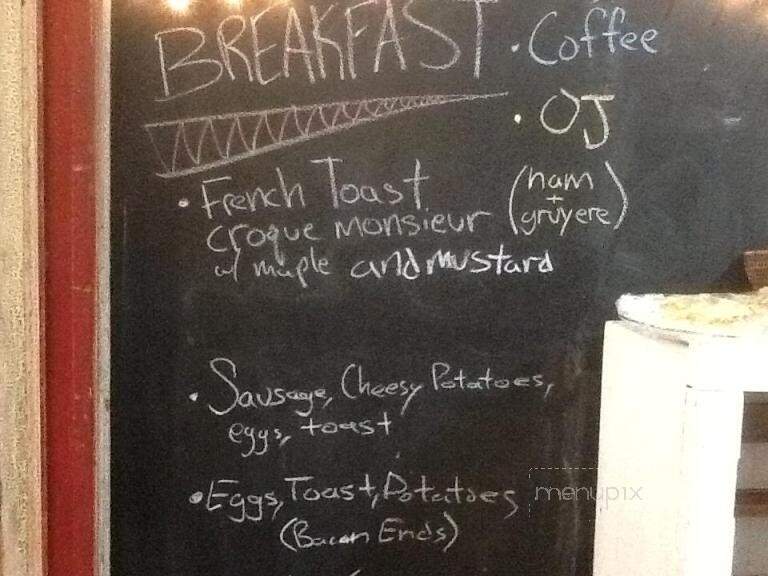 BREAKFAST
• Coffee
• OJ
• French Toast
croque monsieur (ham + gruyere)
w/ maple and mustard
• Sausage, Cheesy Potatoes,
eggs, toast
• Eggs, Toast, Potatoes
(Bacon Ends)
menupix